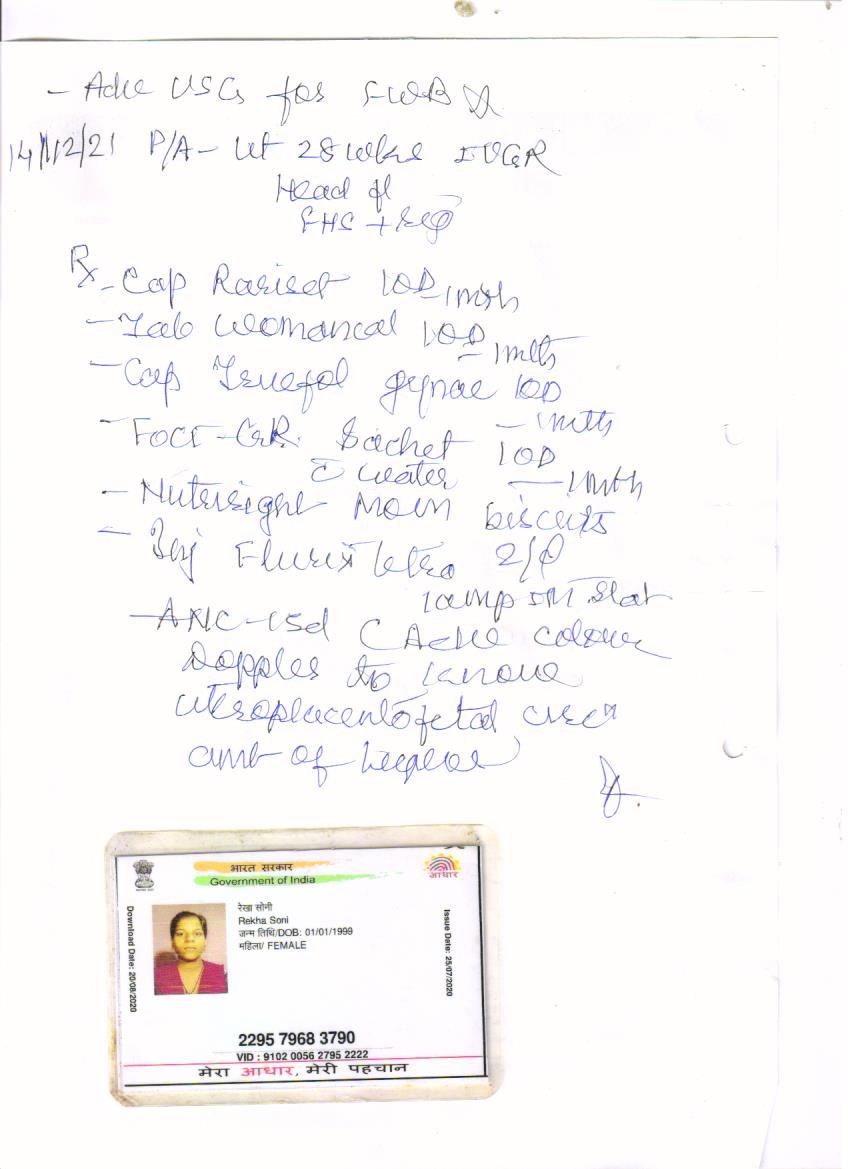 - Adv USG for FWB
14/12/21 P/A - Ut 28 wks IUGR
Head fl
FHS + Reg
Rx - Cap Rariset 1OD - 1mth
- Tab Womancal 1OD - 1mth
- Cap Truefol gynae 1OD - 1mth
- Sachet 1OD - 1mth
c water
- Nutrright Mom biscuits
- Inj Flurix Tetra
1amp IM Stat
- ANC-USG c Adv colour
Doppler to know
uteroplacentofetal
amt of liquor
भारत सरकार
Government of India
आधार
रेखा सोनी
Rekha Soni
जन्म तिथि/DOB: 01/01/1999
महिला/ FEMALE
Download Date: 20/08/2020
Issue Date: 25/07/2020
2295 7968 3790
VID : 9102 0056 2795 2222
मेरा आधार, मेरी पहचान